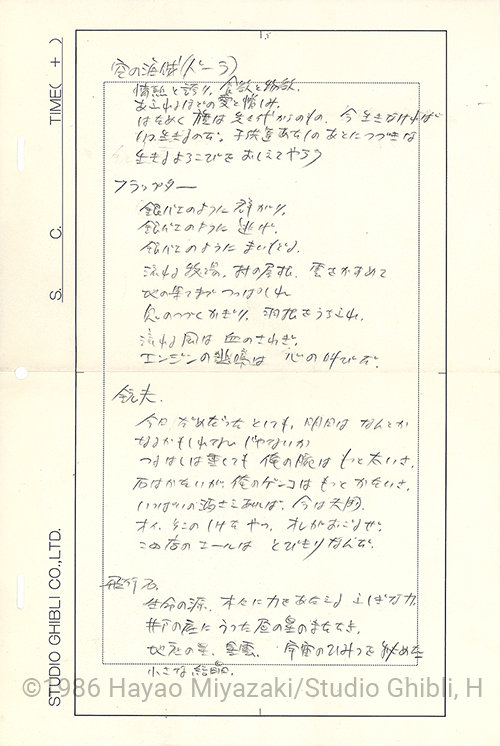 空の海賊(ドーラ)
情熱と誇り、食欲と物欲、
あふれるほどの愛と憎しみ、
はためく旗は 今 生きなければ
いつ生きるのさ。子供達 あたしのあとにつづきな
生きるよろこびを おしえてやろう
フラップター
銀バエのように 群がり、
銀バエのように 逃げ、
銀バエのように まいもどる
流れる牧場、村の屋根、雲をかすめて
地の果てまで つっぱしれ
息のつづくかぎり、羽根をうちふれ、
流れる風は 血のさわぎ、
エンジンの悲鳴は 心の叫びだ。
鉱夫
今日がだめだったとしても、明日は なんとか
なるかもしれてんじゃないか
つるはしは重くても 俺の腕は もっと太いさ、
石はかたいが、俺のゲンコは もっとかたいさ、
いっぱいの酒さえあれば、今は天国
オイ、そこの しけたやつ、オレがおごるぜ、
この店のエールは とびきりなんだ。
飛行石
生命の源、木々に力をあたえる ふしぎな力、
井戸の底にうつった昼の星のまたたき、
地底の星、星雲、宇宙のひみつを 秘めた
小さな結晶。
TIME( + )
S. C.
STUDIO GHIBLI CO.,LTD.
© 1986 Hayao Miyazaki/Studio Ghibli, H